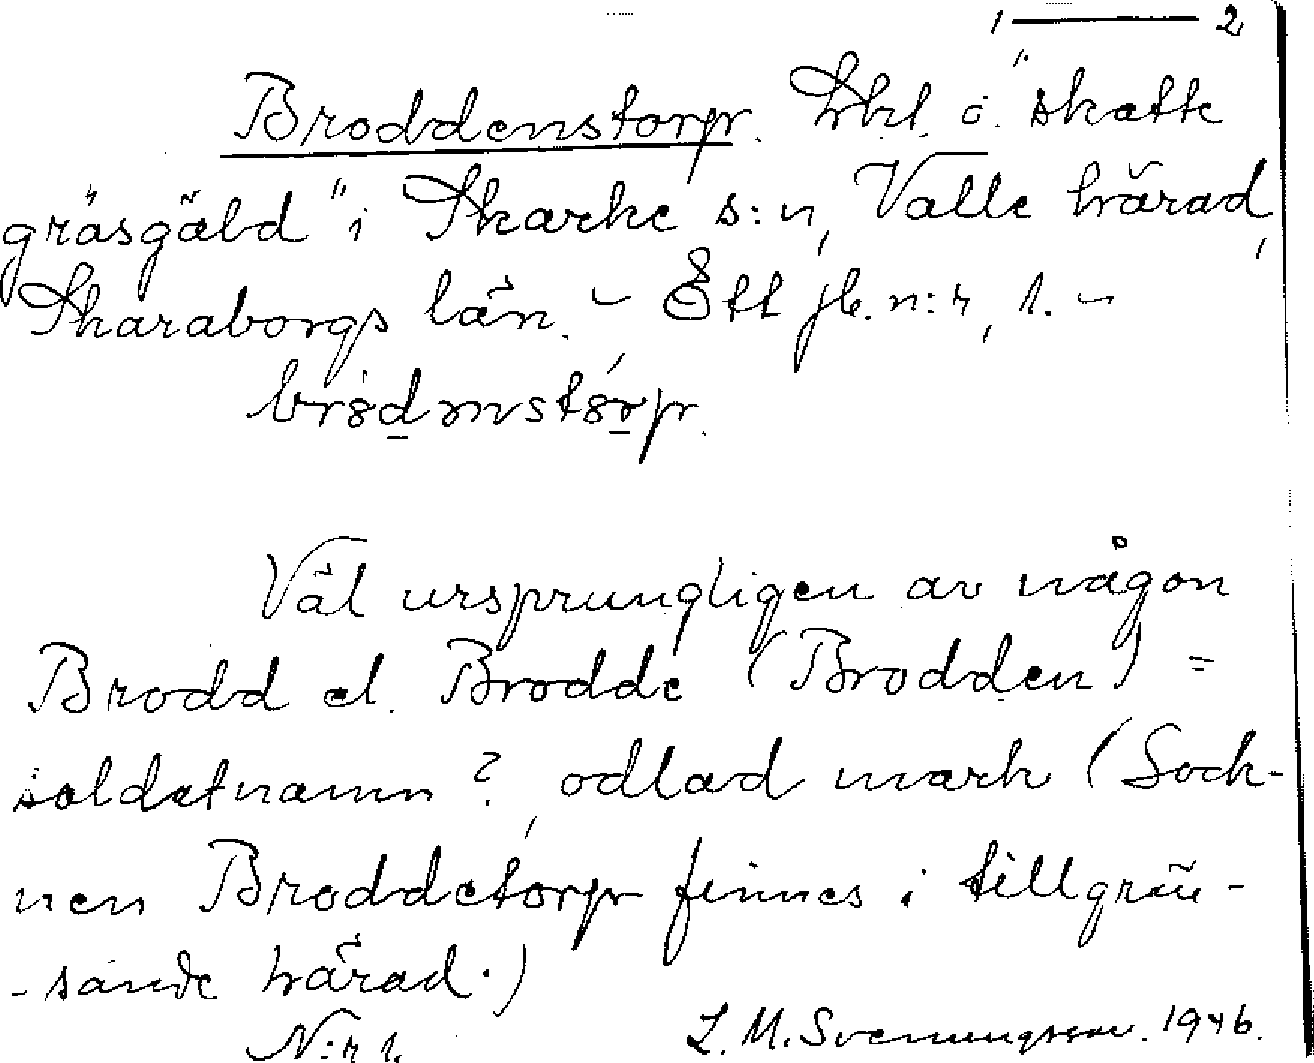 1 — 2
Broddenstorp. hkl. o. "skatte
gräsgäld" i Skarke s:n, Valle härad,
Skaraborgs län. - Ett jb. n:r, 1. -
Väl ursprungligen av någon
Brodd el. Brodde (Brodden) =
soldatnamn?, odlad mark (Sock-
nen Broddetorp finnes i tillgrän-
-sande härad.)
N:r 1. L. M. Svenungsson. 1946.